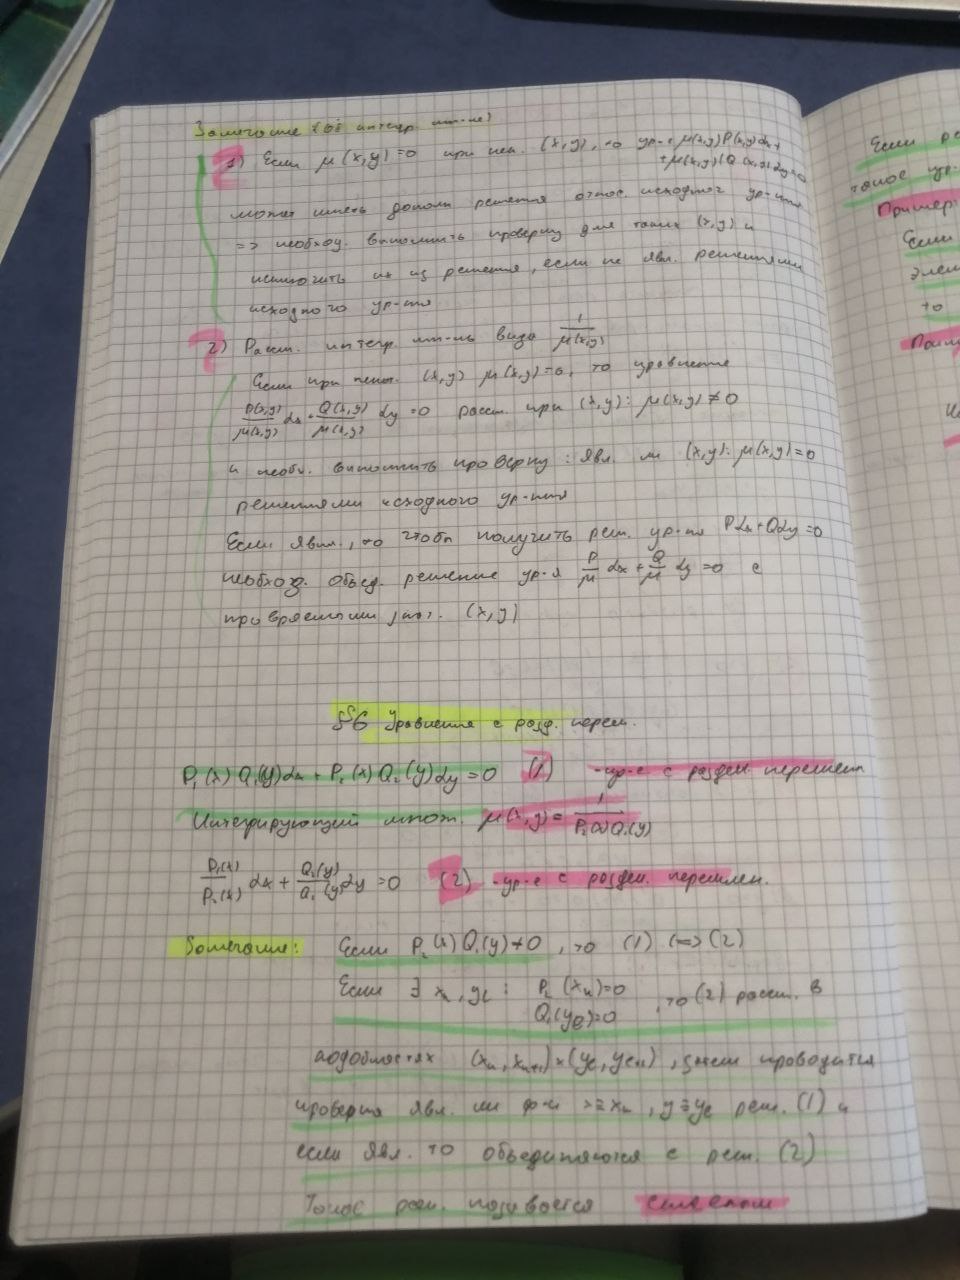 Замечание (об интегр. мн-ле)
1) Если μ(x,y)=0 при нек. (x,y), то ур-е μ(x,y)P(x,y)dx+
+μ(x,y)Q(x,y)dy=0
может иметь дополн решения относ. исходног ур-ния
=> необход. выполнить проверку для таких (x,y) и
исключить их из решения, если не явл. решениями
исходного ур-ния
2) Рассм. интегр. мн-ль вида 1/μ(x,y)
Если при некот. (x,y) μ(x,y)=0, то уравнение
P(x,y)/μ(x,y) dx + Q(x,y)/μ(x,y) dy =0 рассм. при (x,y): μ(x,y)≠0
и необх. выполнить проверку: явл. ли (x,y): μ(x,y)=0
решениями исходного ур-ния
Если явл., то чтобы получить реш. ур-ния Pdx+Qdy=0
необход. объед. решение ур-я P/μ dx + Q/μ dy =0 с
проверяемыми (x,y)
§6 Уравнения с разд. перем.
P₁(x)Q₁(y)dx + P₂(x)Q₂(y)dy=0 (1) -ур-е с раздел. перемен
Интегрирующий множ. μ(x,y)= 1/P₂(x)Q₁(y)
P₁(x)/P₂(x) dx + Q₂(y)/Q₁(y) dy =0 (2) -ур-е с раздел. перемен.
Замечание: Если P₂(x)Q₁(y)≠0, то (1) <=> (2)
Если ∃ xₖ, yₗ: P₂(xₖ)=0
Q₁(yₗ)=0, то (2) рассм. в
подобластях (xₖ, xₖ₊₁)×(yₗ, yₗ₊₁), затем проводится
проверка явл. ли ф-и x≡xₖ, y≡yₗ реш. (1) и
если явл. то объединяются с реш. (2)
Такое реш. называется